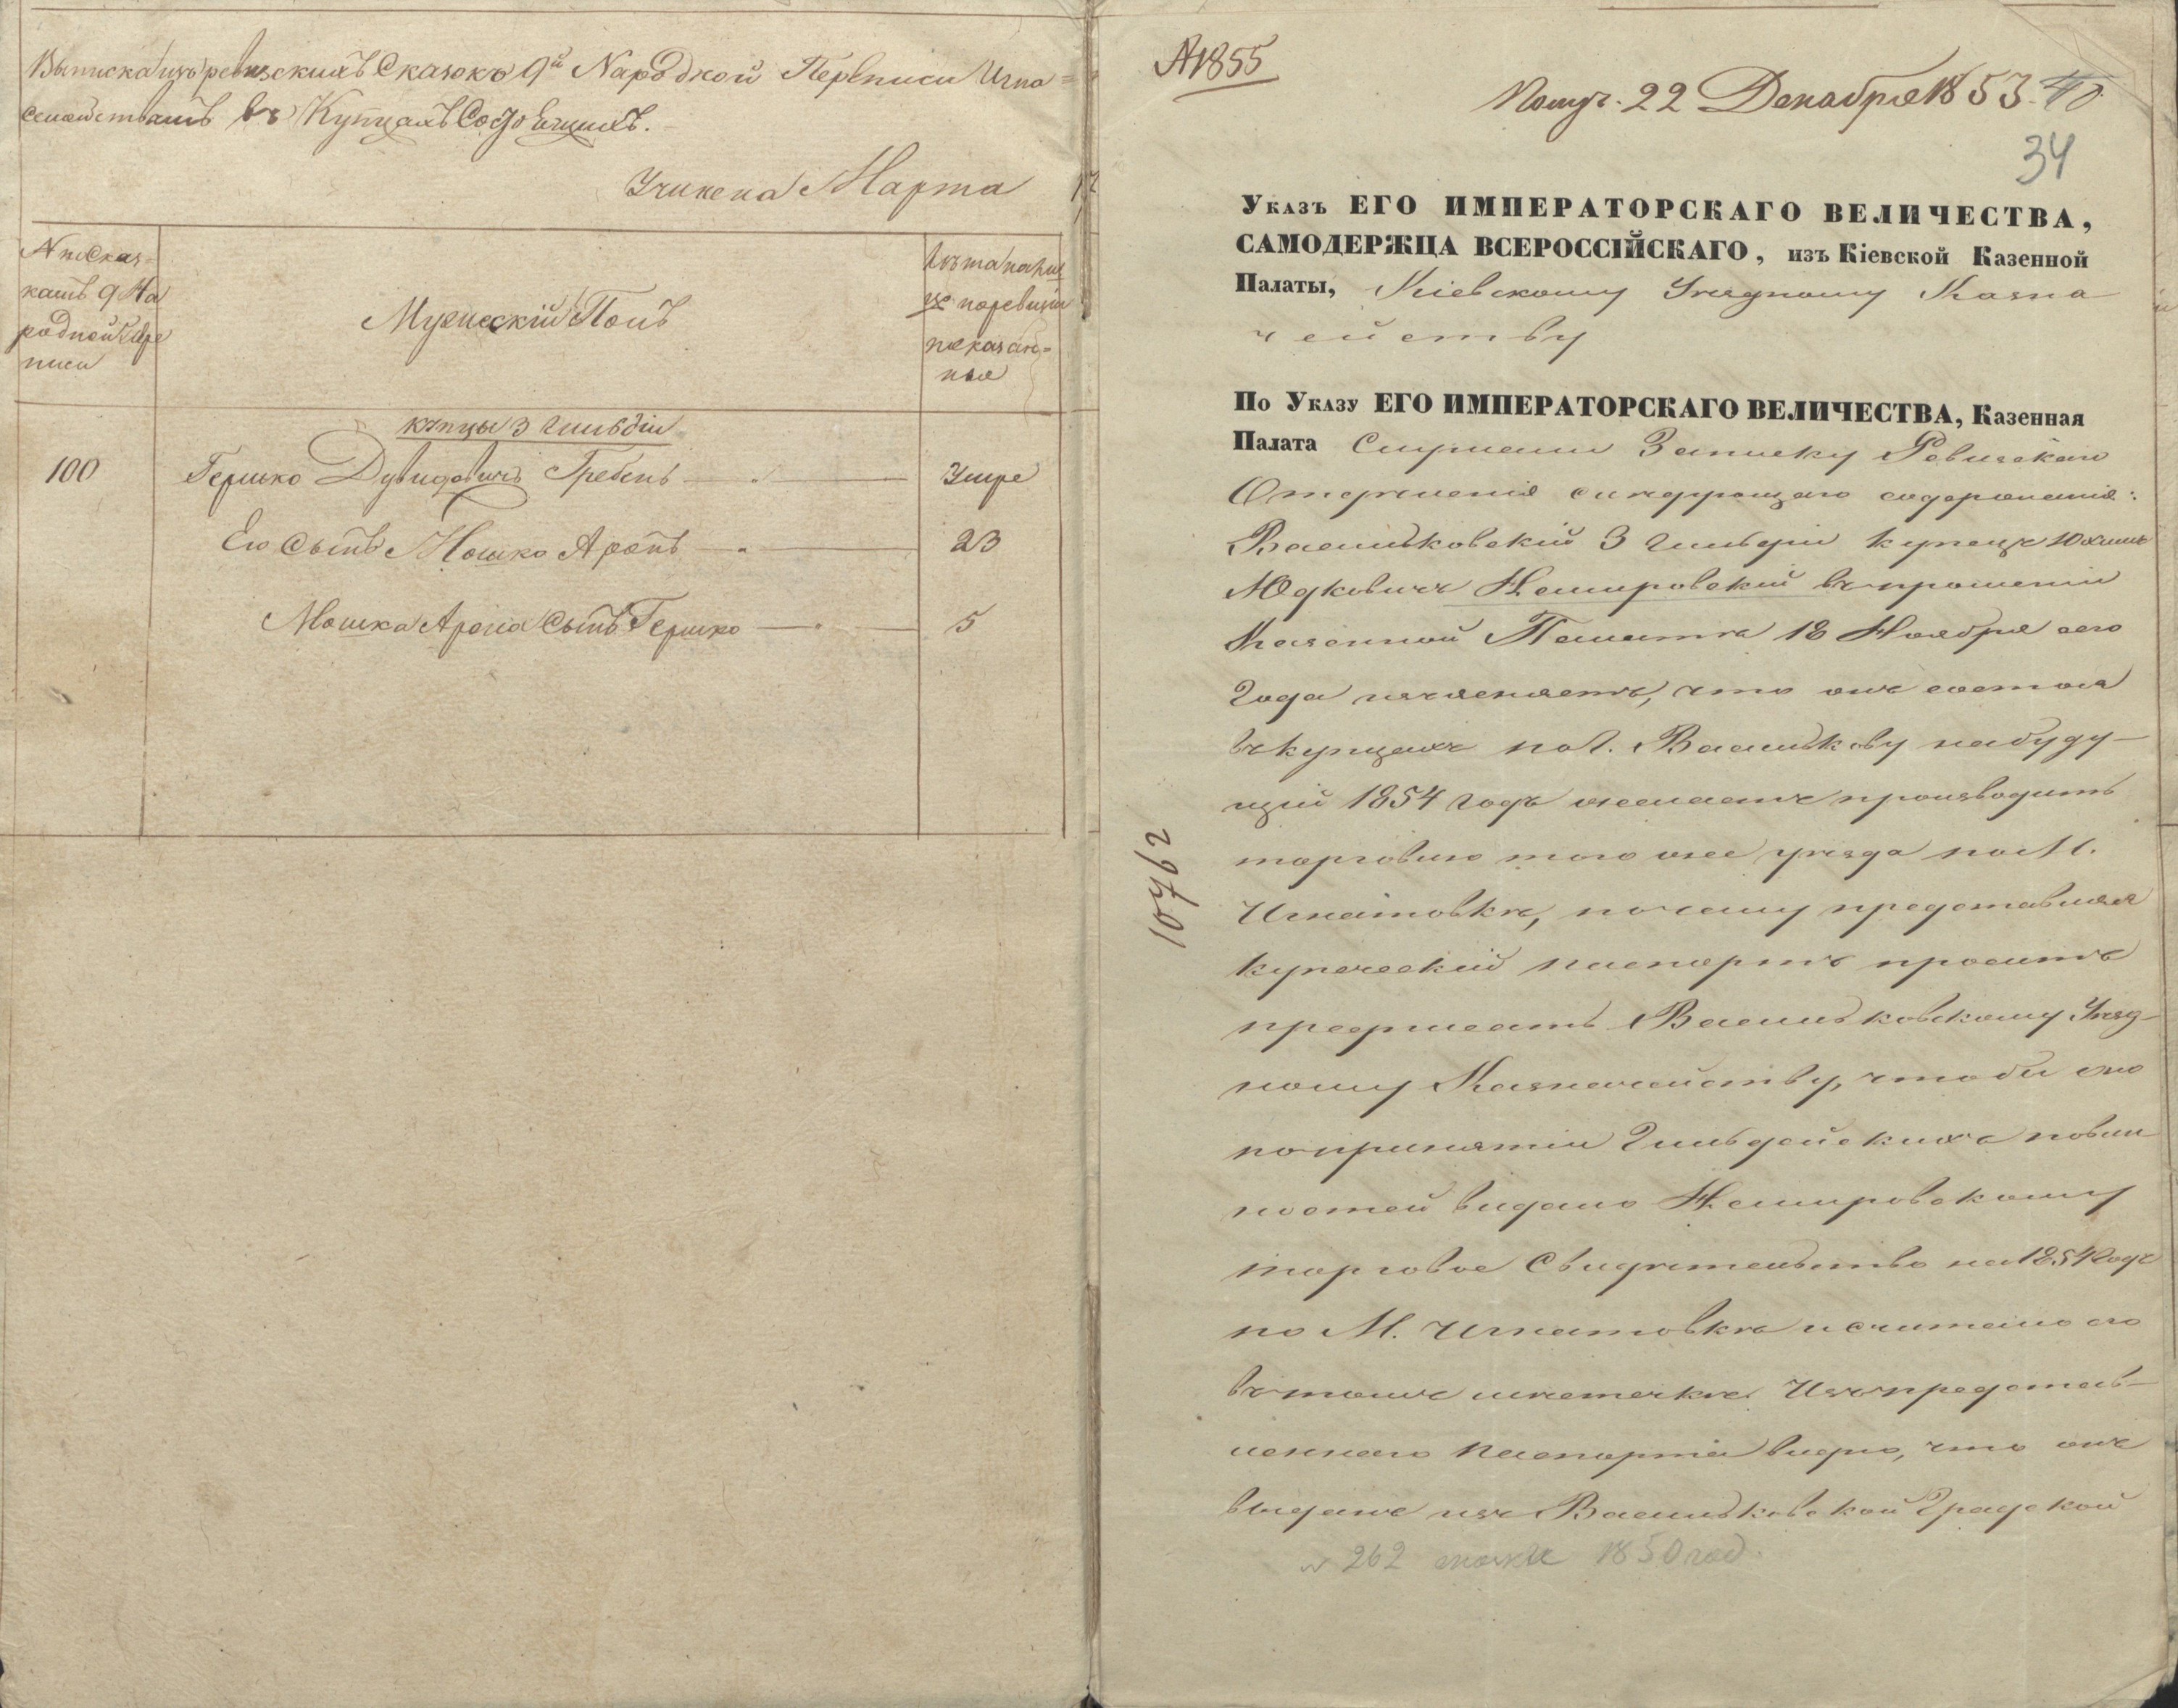 Выписка изъ ревизскихъ Сказокъ 9й Народной Переписи Игна=
въ Купцахъ Состоящихъ.
Учинена Марта
№ по Сказ=
камъ 9 На
родной Пере
писи
Мужескій Полъ
Лѣта на ли
це по ревизіи
показан=
ные
купцы 3 гильдіи
100 Гершко Дувидовичъ Гребень — Умре
Его Сынъ Мошко Аронъ — 23
Мошка Арона Сынъ Гершко — 5
1855
Получ. 22 Декабря 1853
34
Указъ ЕГО ИМПЕРАТОРСКАГО ВЕЛИЧЕСТВА,
САМОДЕРЖЦА ВСЕРОССІЙСКАГО, изъ Кіевской Казенной
Палаты, Кіевскому Уѣздному Казна
чейству
По Указу ЕГО ИМПЕРАТОРСКАГО ВЕЛИЧЕСТВА, Казенная
Палата Слушали Записку Ревизскаго
Отдѣленія слѣдующаго содержанія:
Васильковскій 3 гильдіи купецъ
Юдковичъ Немировскій въ прошеніи
Казенной Палатѣ 18 Ноября сего
Года изъясняетъ, что онъ состоя
въ купцахъ по г. Василькову на буду-
щій 1854 годъ желаетъ производить
торговлю того же уѣзда по М.
Игнатовкѣ, почему представляя
купеческій паспортъ проситъ
предписать Васильковскому Уѣзд-
ному Казначейству, чтобы оно
по принятіи Гильдейскихъ повин
ностей видало Немировскому
торговое Свидѣтельство на 1854 годъ
по М. Игнатовкѣ и считало его
въ томъ мѣстечкѣ. Изъ представ-
леннаго паспорта видно, что онъ
выданъ изъ Васильковской Градской
10762
№ 262 1850 год.